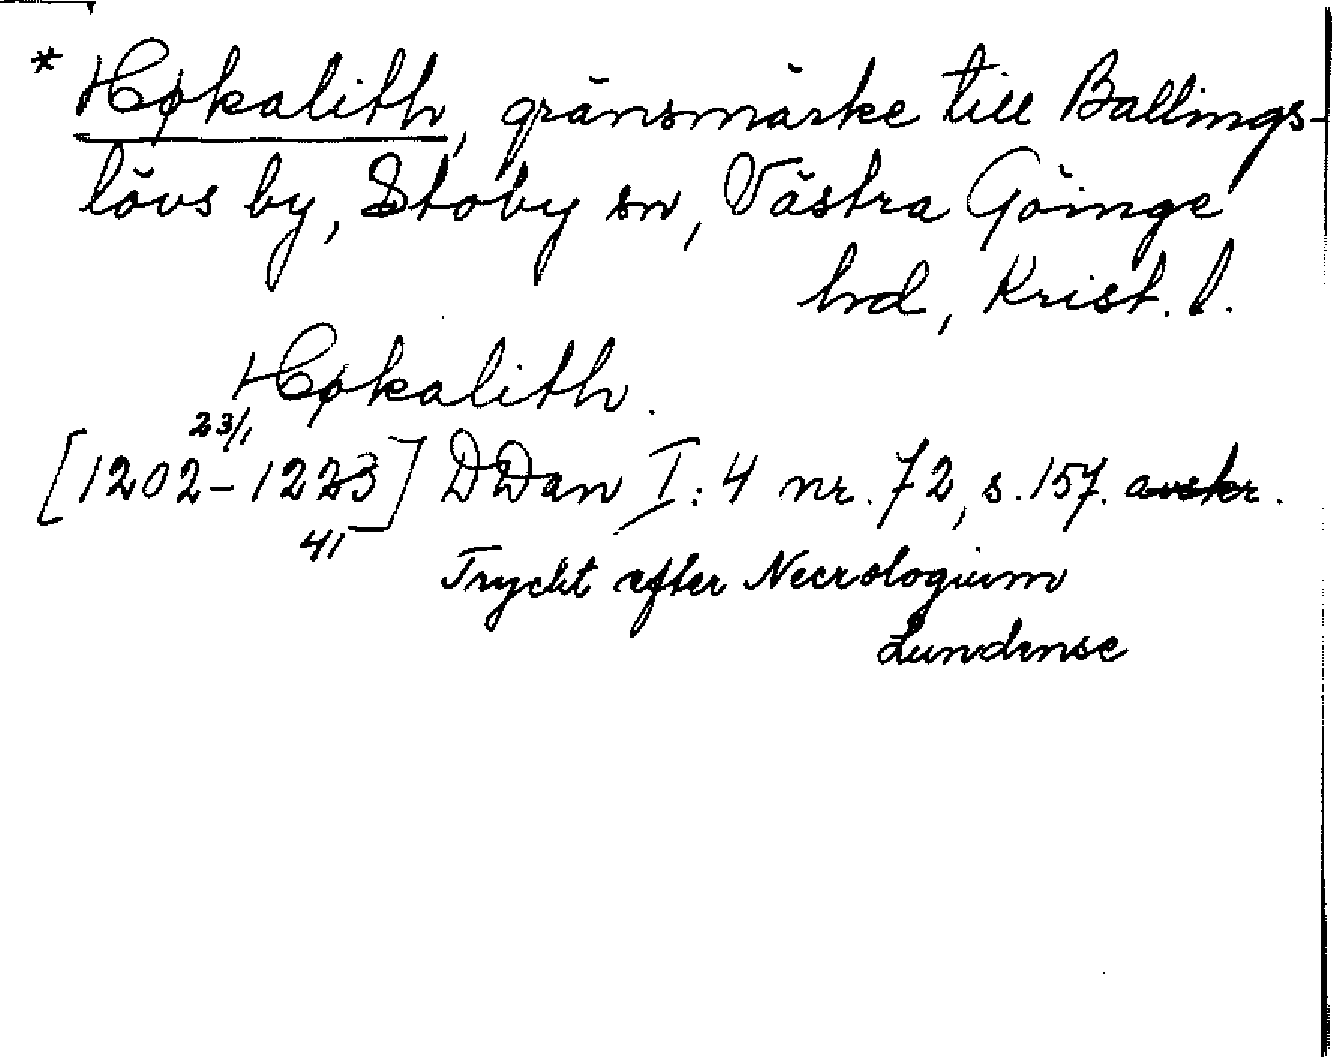 * Høkalith, gränsmärke till Ballings-
lövs by, Stoby sn, Västra Göinge
hd, Krist. l.
Høkalith.
23/1
[1202-1223] DDan I:4 nr. 72, s. 157. avskr.
41
Tryckt efter Necrologium
Lundense